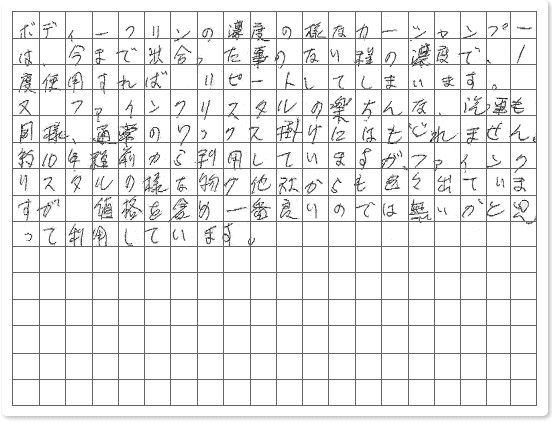 ボディークリンの濃度の様なカーシャンプー
は、今まで出合った事のない程の濃度で、1
度使用すれば リピートしてしまいます。
又 ファインクリスタルの楽ちんな、汽車も
同様、通常のワックス掛けにはもどれません。
約10年程前から利用していますが、ファインク
リスタルの様な物が他社からも色々出ていま
すが 価格を含め一番良いのでは無いかと思
って利用しています。